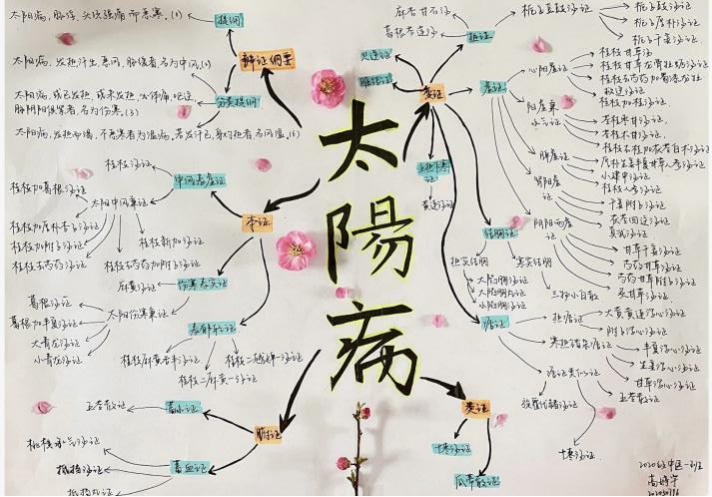 太阳病
辨证纲要
提纲
太阳病，脉浮，头项强痛而恶寒。(1)
分类提纲
太阳病，发热汗出，恶风，脉缓者，名为中风。(2)
太阳病，或已发热，或未发热，必恶寒，体痛，呕逆，
脉阴阳俱紧者，名为伤寒。(3)
太阳病，发热而渴，不恶寒者为温病。若发汗已，身灼热者，名风温。(6)
本证
中风表虚证
桂枝汤证
太阳中风兼证
桂枝加葛根汤证
桂枝加厚朴杏子汤证
桂枝加附子汤证
桂枝去芍药汤证
桂枝去芍药加附子汤证
桂枝新加汤证
伤寒表实证
麻黄汤证
太阳伤寒兼证
葛根汤证
葛根加半夏汤证
大青龙汤证
小青龙汤证
表郁轻证
桂枝麻黄各半汤证
桂枝二麻黄一汤证
桂枝二越婢一汤证
腑证
蓄水证
五苓散证
蓄血证
桃核承气汤证
抵挡汤证
抵挡丸证
变证
热证
麻杏甘石汤
葛根芩连汤
栀子豆豉汤证
栀子厚朴汤证
栀子干姜汤证
虚证
心阳虚证
桂枝甘草汤
桂枝甘草龙骨牡蛎汤证
桂枝加桂汤证
阳虚兼
水气证
苓桂枣甘汤证
苓桂术甘汤证
脾虚证
小建中汤证
桂枝人参汤证
肾阳虚证
干姜附子汤证
茯苓四逆汤证
真武汤证
阴阳两虚证
甘草干姜汤证
芍药甘草汤证
芍药甘草附子汤证
炙甘草汤证
上热下寒证
黄连汤证
结胸证
热实结胸
大陷胸汤证
大陷胸丸证
小陷胸汤证
寒实结胸
三物小白散
痞证
热痞证
大黄黄连泻心汤证
附子泻心汤证
寒热错杂痞证
半夏泻心汤证
生姜泻心汤证
甘草泻心汤证
痞证类似证
旋覆代赭汤证
五苓散证
十枣汤证
类证
十枣汤证
瓜蒂散证